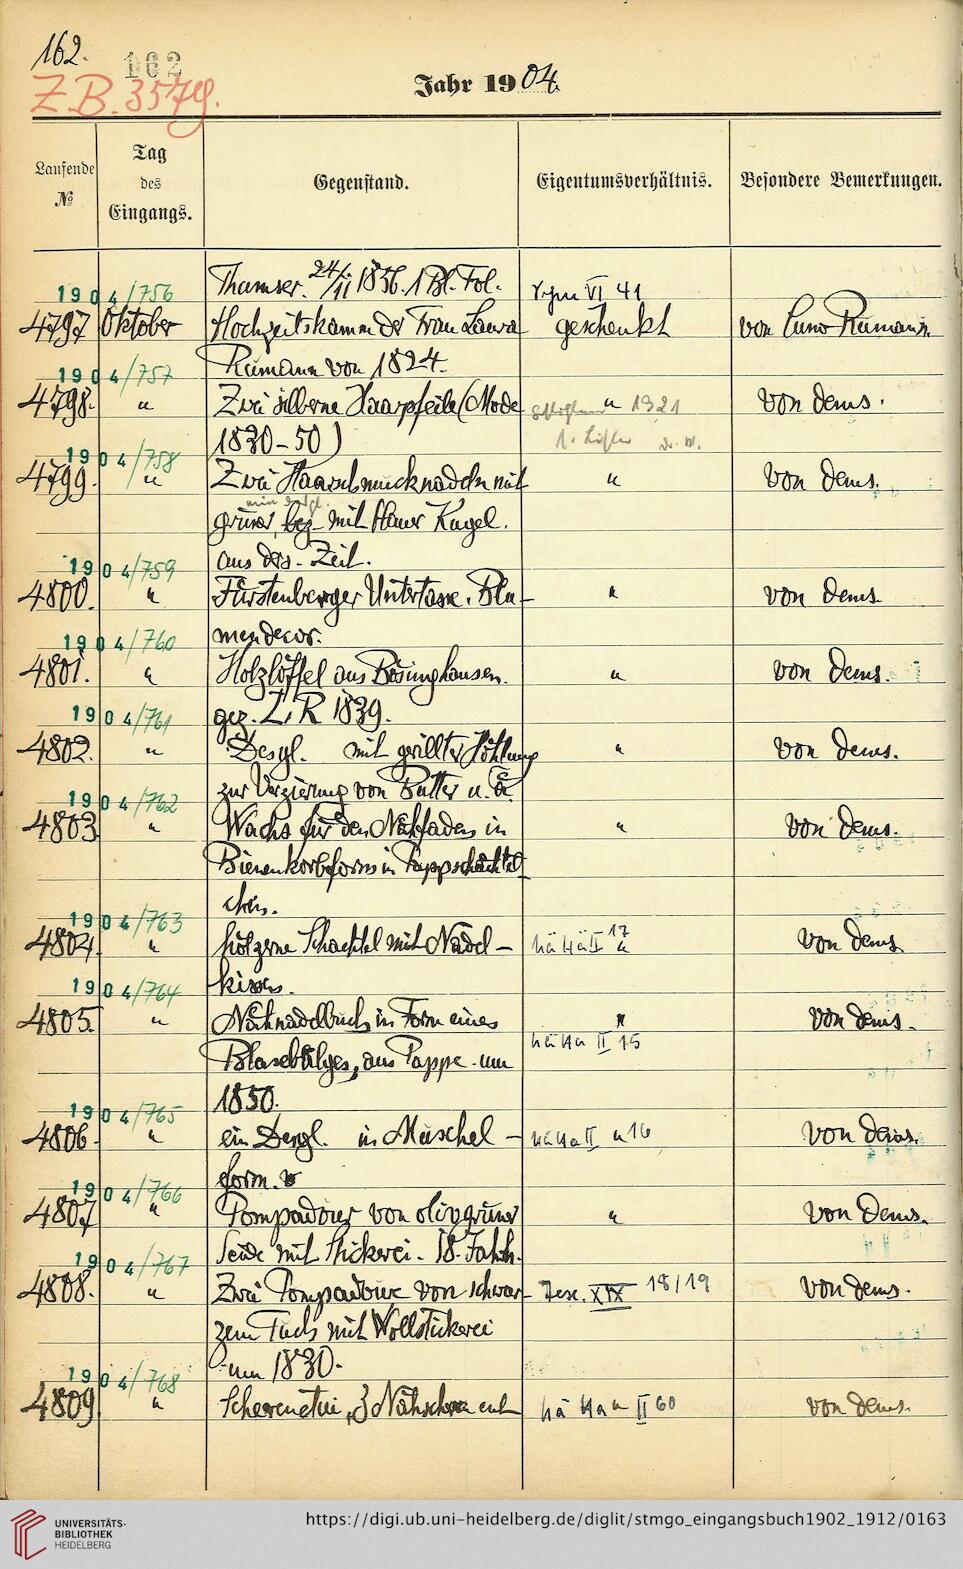 162.
162
Z.B. 3579.
Jahr 1904.
Laufende № Tag des Eingangs. Gegenstand. Eigentumsverhältnis. Besondere Bemerkungen.
Thamser. 24/11 1856. 1 Bl. Fol. VI 41
1904/756
4797 Oktober Hochzeitskamm der Frau Laura geschenkt von Cuno Rümann
Rümann von 1824.
1904/757
4798. " Zwei silberne Haarpfeile (Mode " 1921 von dems.
1830-50)
1904/758
4799. " Zwei Haarschmucknadeln mit " von dems.
grüner, bez. mit blauer Kugel.
aus ders. Zeit.
1904/759
4800. " Fürstenberger Untertasse. Blu- " von dems.
mendecor.
1904/760
4801. " Holzlöffel aus Bösinghausen. " von dems.
gez. L. R 1839.
1904/761
4802. " Desgl. mit gerillter Höhlung " von dems.
zur Verzierung von Butter u. Ä.
1904/762
4803 " Wachs für den Nähfaden in " von dems.
Bienenkorbform in Pappschächtel-
chen.
1904/763
4804. " hölzerne Schachtel mit Nadel- II 17 " von dems.
kissen.
1904/764
4805. " Nähnadelbuch in Form eines " von dems.
Blasebalges, aus Pappe. um II 15
1850.
1904/765
4806. " ein Desgl. in Muschel- II " 16 von dems.
form.
1904/766
4807 " Pompadour von olivgrüner " von dems.
Seide mit Stickerei. 18. Jahrh.
1904/767
4808. " Zwei Pompadoure von schwar- XIX 18/19 von dems.
zem Tuch mit Wollstickerei
um 1830.
1904/768
4809. " Scherenetui, 3 Nähscheren ent- " II 60 von dems.
UNIVERSITÄTS-
BIBLIOTHEK
HEIDELBERG
https://digi.ub.uni-heidelberg.de/diglit/stmgo_eingangsbuch1902_1912/0163